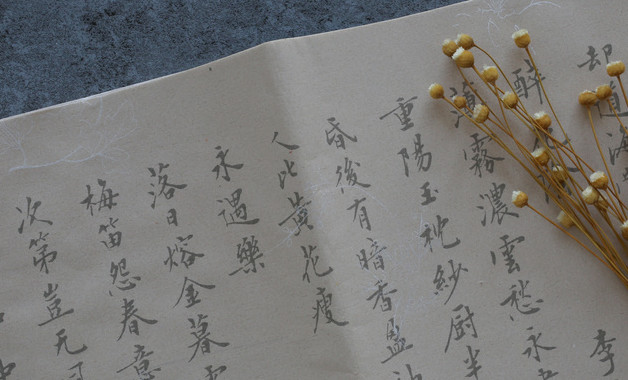 却道海
醉 李
薄霧濃雲愁永
重陽玉枕紗厨半
昏後有暗香盈
人比黃花瘦
永遇樂
落日熔金暮
梅笛怨春意
次第豈无